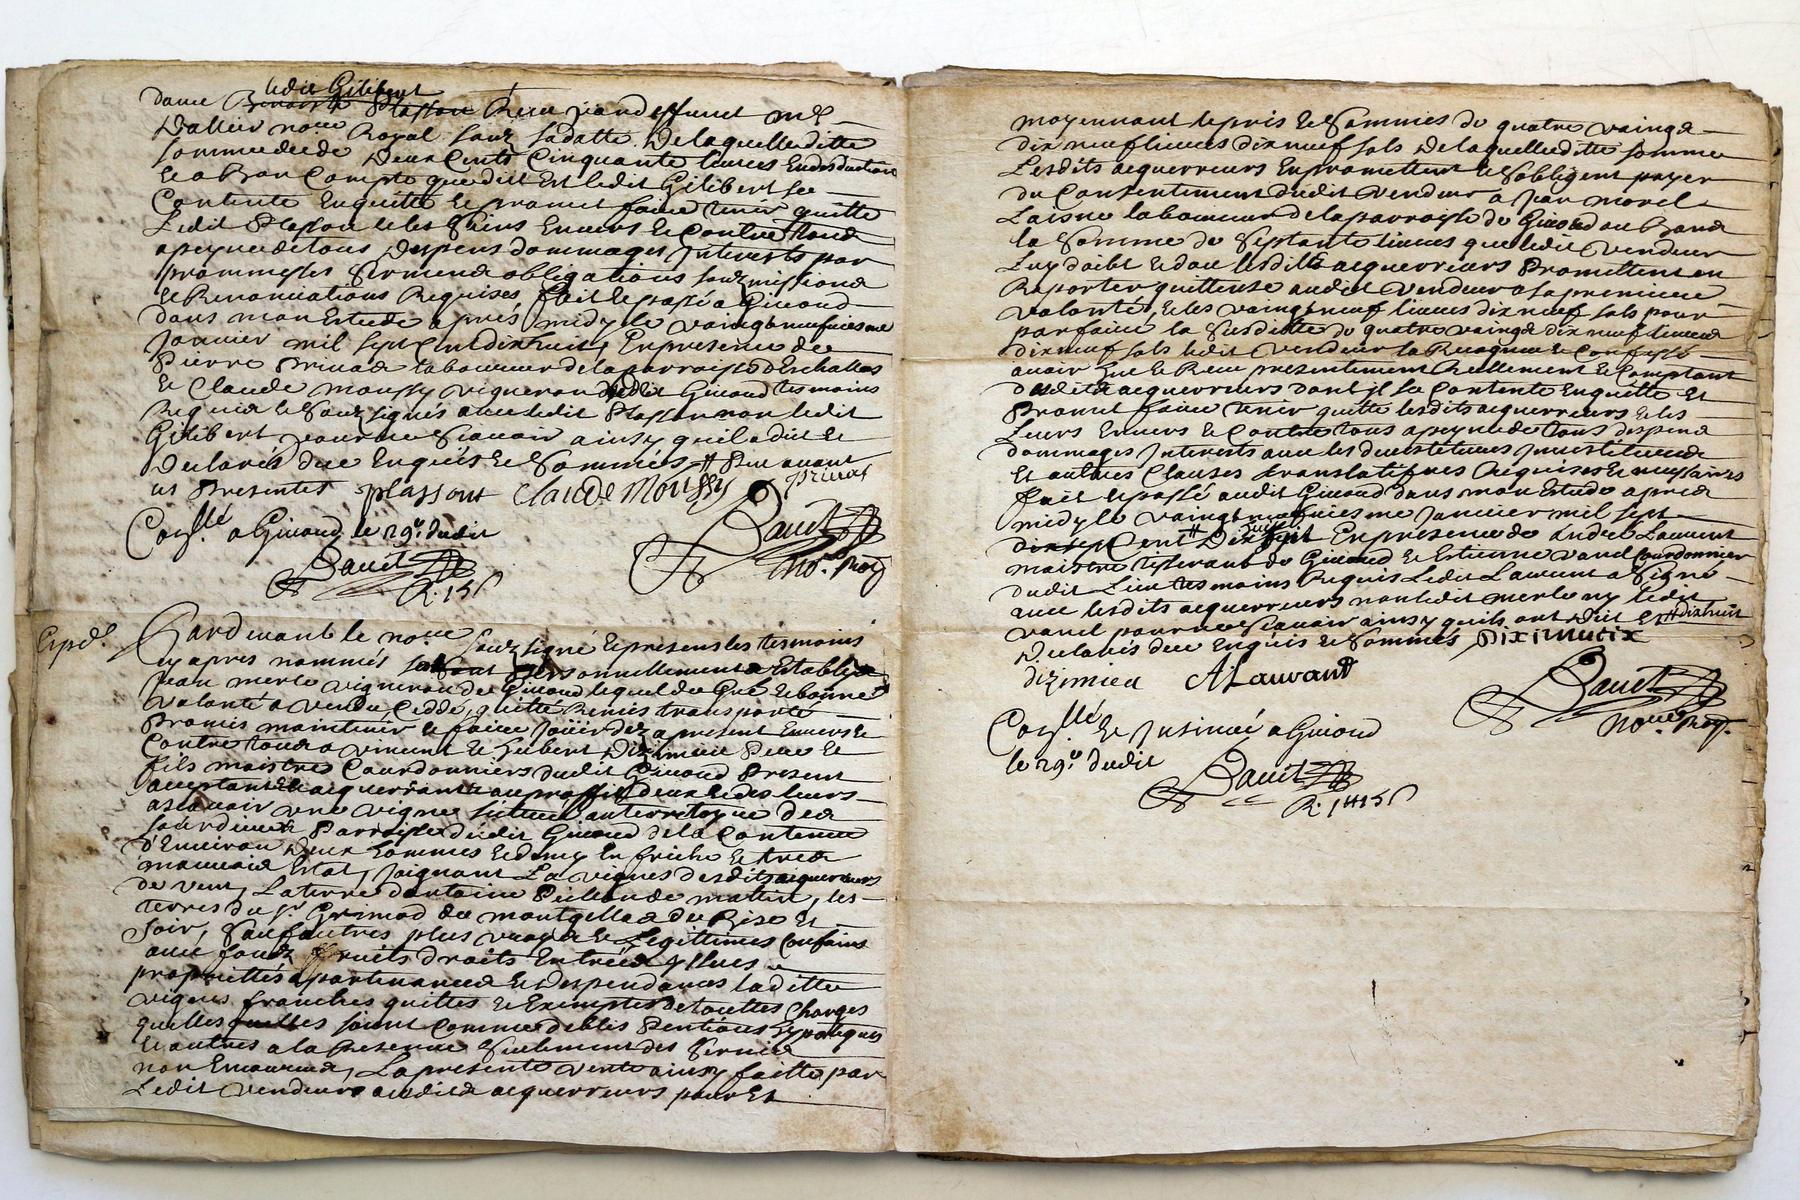 ledit Gilibert
dame Benoiste Plasson Reçu par deffunct me
Dallier nore Royal souz sa datte, De laquelle ditte
somme de Deux Cents Cinquante livres En desduction
Et a Bon Compte que dict Est ledit Gilibert se
Contente Enquitte Et promet faire tenir quitte
Ledit Plasson Et les Siens Envers Et Contre tous
a peyne de tous Despens dommages Interests par
prommesses Sermens obligations soubzmissions
Et Renonciations Requises, fait Et passé a Givord
dans mon Estude apres midy le vaingt neufviesme
Janvier mil sept Cent dix huit, En presence de
Pierre Privas laboureur de la parroisse D'Eschallas
Et Claude Moussy vigneron dudit Givord tesmoins
Requis Et Souz signés avec ledit Plasson non ledit
Gilibert pour ne Scavoir ainsy quil a dict Et
Declaré de ce Enquis Et Sommés
ces Presentes plassont Claude Moussy privas
Conllé a Givord le 29e dudit
Bauet nore Roy
Bauet
R. 15 s
Expdé.
Pardevant le nore souz signé Et presens les tesmoins
cy apres nommés personnellement Establi
Jean merle vigneron de Givord lequel de Gré Et bonne
volonté a vendu Cedde, quitte Remis transporté
Promis maintenir Et faire Jouir dez a present Envers Et
Contre tous a vincent Et hubert Dizimieu Pere Et
fils maistres Courdonniers dudit Givord Present
acceptants Et acquerrants au proffit d'eux Et des leurs
ascavoir une vigne scituée au territoyre des
Parroisse dudit Givord de la Contenue
D'Environ Deux hommes Et demy En friche Et tres
mauvais Estat, Joignant La vigne desdits acquereurs
de vent, La terre d'antoine de matin, les
terres du sr Grimod de montgelas de Bize Et
Soir, sauf autres plus vrays Et Legittimes Confains
avec fondz fruits droits Entrées yssues
propriettés apartinances Et despendances laditte
vigne franche quitte Et Exempte de touttes Charges
quelles quelles soient Comme debtes Pentions Hypoteques
Et autres a la Reserve Seulement des Servis
non Encourus, La presente vente ainsy faitte par
Ledit vendeur ausdits acquerreurs pour Et
moyennant le pris Et Sommes de quatre vaingts
dix neuf livres dix neuf sols De laquelle ditte somme
Lesdits acquerreurs En promettent Et S'obligent payer
du Consentement dudit vendeur a Jean morel
Laisné laboureur de la parroisse de Givord au
la Somme de Septante livres que ledit vendeur
Luy doibt Et dont lesdits acquerreurs Promettent en
Raporter quittense audit vendeur a sa premiere
volonté, Et les vaingt neuf livres dix neuf sols pour
parfaire la susditte de quatre vaingts dix neuf livres
dix neuf sols ledit vendeur la Recognu Et Confessé
avoir Eue Et Reçu presentement Reellement Et Comptant
desdits acquerreurs dont il se Contente Enquitte Et
Promet faire tenir quitte lesdits acquerreurs Et les
Leurs Envers Et Contre tous a peyne de tous despens
dommages Interests avec les devestitures Investitures
Et autres Clauses translatifves Requises Et necessaires
fait Et passé audit Givord dans mon Estude apres
midy le vaingt neufviesme Janvier mil sept
Cent En presence de André Laurent
maistre tisserant de Givord Et Estienne vanel Courdonnier
dudit Lieu tesmoins Requis Ledit Laurent a Signé
avec lesdits acquerreurs non ledit merle ny ledit
vanel pour ne Scavoir ainsy quils ont Dict Et dix huit
Declarés de ce Enquis Et Sommés
dizimieu A Lauvant
Bauet nore Roy.
Conllé Et Insinué a Givord
le 29e dudit
Bauet